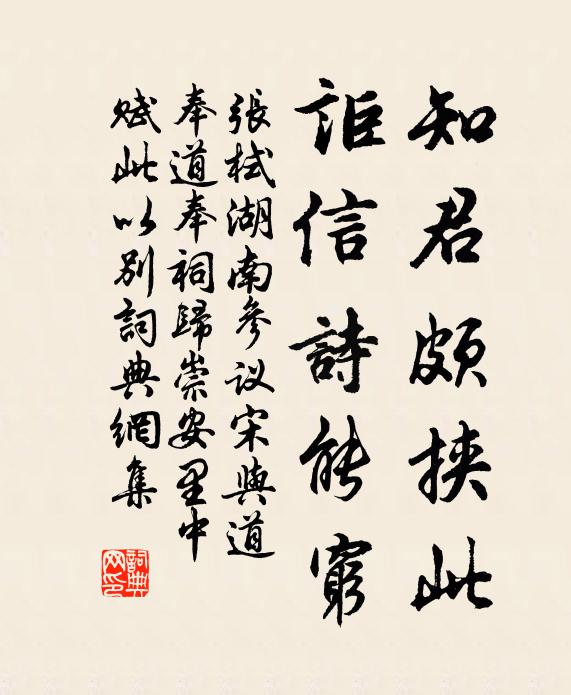 知君頗挾此
詎信詩能窮
張栻湖南參议宋與道
奉道奉祠歸崇安里中
賦此以别詞典網集
詞典網印